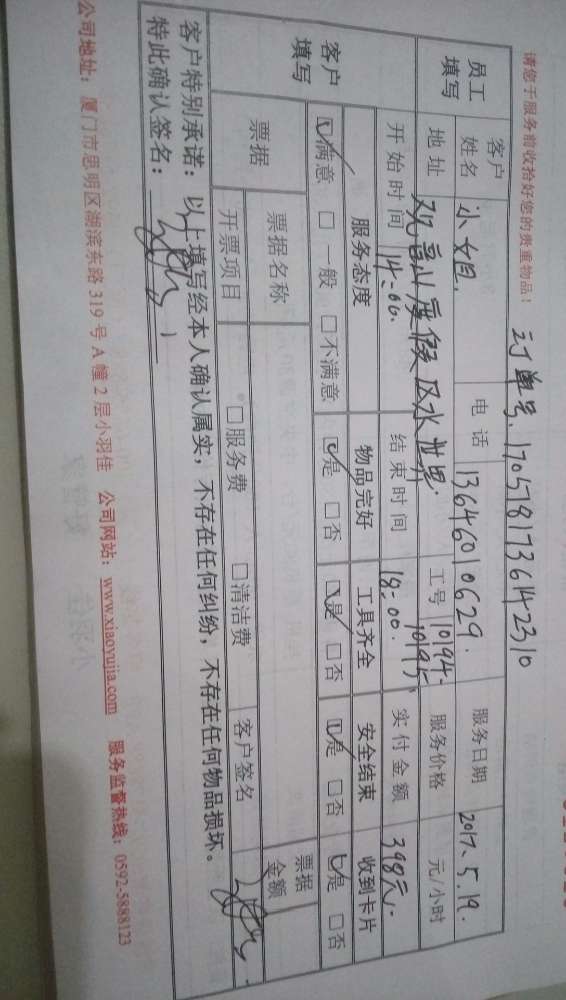 订单号:1705181736142310
请您于服务前收拾好您的贵重物品!
员工填写 客户姓名 小姐. 电话 13646010629. 服务日期 2017.5.19.
地址 观音山度假区水世界. 工号 10194- 10195 服务价格 元/小时
开始时间 14:00. 结束时间 18:00. 实付金额 398元.
客户填写 服务态度 物品完好 工具齐全 安全结束 收到卡片
☑满意 □一般 □不满意 ☑是 □否 ☑是 □否 ☑是 □否 ☑是 □否
票据 票据名称 票据金额
开票项目 □服务费 □清洁费 客户签名
客户特别承诺:以上填写经本人确认属实,不存在任何纠纷,不存在任何物品损坏。
特此确认签名:
公司地址:厦门市思明区湖滨东路319号A幢2层小羽佳 公司网站:www.xiaoyujia.com 服务监督热线:0592-5888123